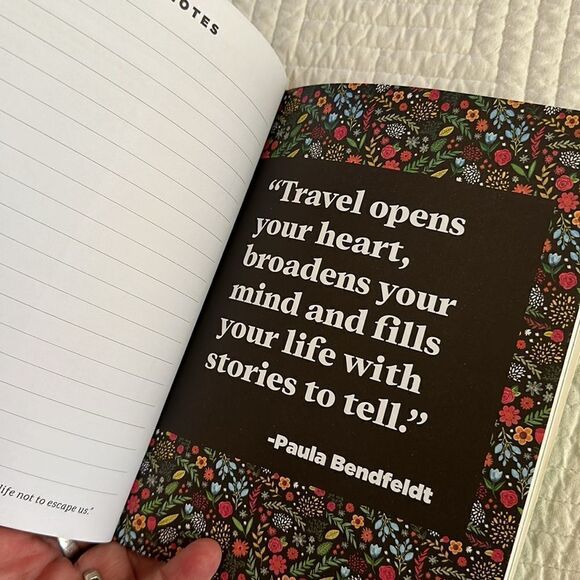 NOTES
life not to escape us."
“Travel opens
your heart,
broadens your
mind and fills
your life with
stories to tell.”
-Paula Bendfeldt